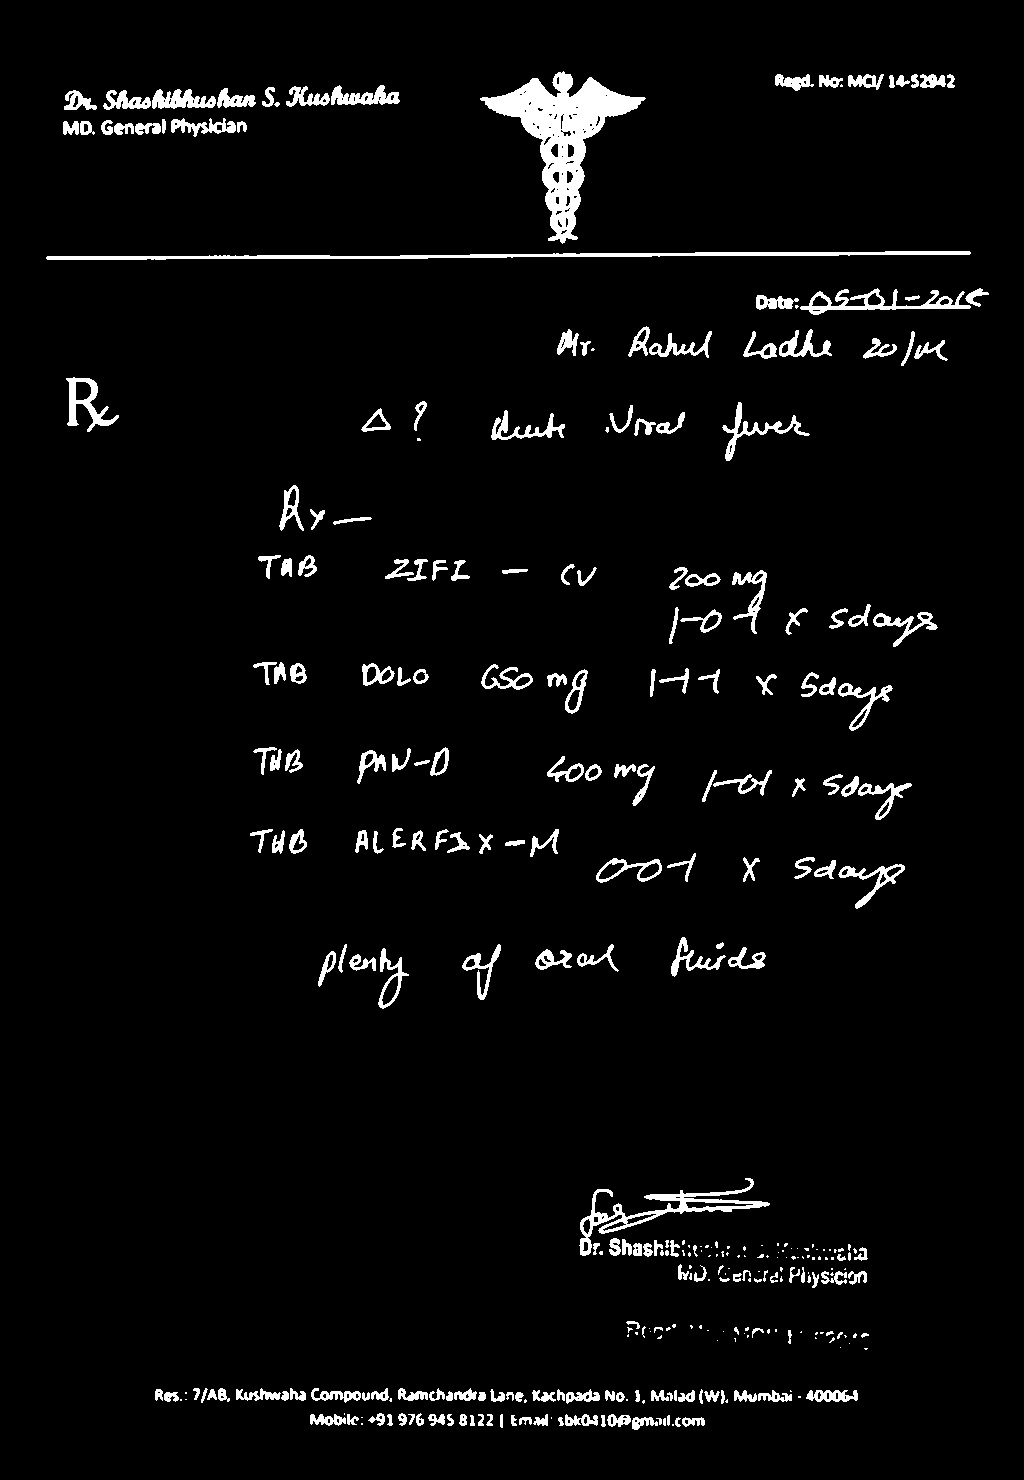 Dr. Shashibhushan S. Kushwaha
MD. General Physician
Regd. No: MCI/ 14-52942
Date: 05-01-201
Mr. Rahul Ladhe 20/M
Rx
Δ ? Acute Viral fever
Rx —
TAB ZIFI - CV 200 mg
1-0-1 x 5days
TAB DOLO 650 mg 1-1-1 x 5days
TAB PAN-D 400 mg 1-0-1 x 5days
TAB ALERFIX-M
0-0-1 x 5days
plenty of oral fluids
Dr. Shashibhushan S. Kushwaha
MD. General Physician
Res.: 7/AB, Kushwaha Compound, Ramchandra Lane, Kachpada No. 1, Malad (W), Mumbai - 400064
Mobile: +91 976 945 8122 | Email: sbk0410@gmail.com